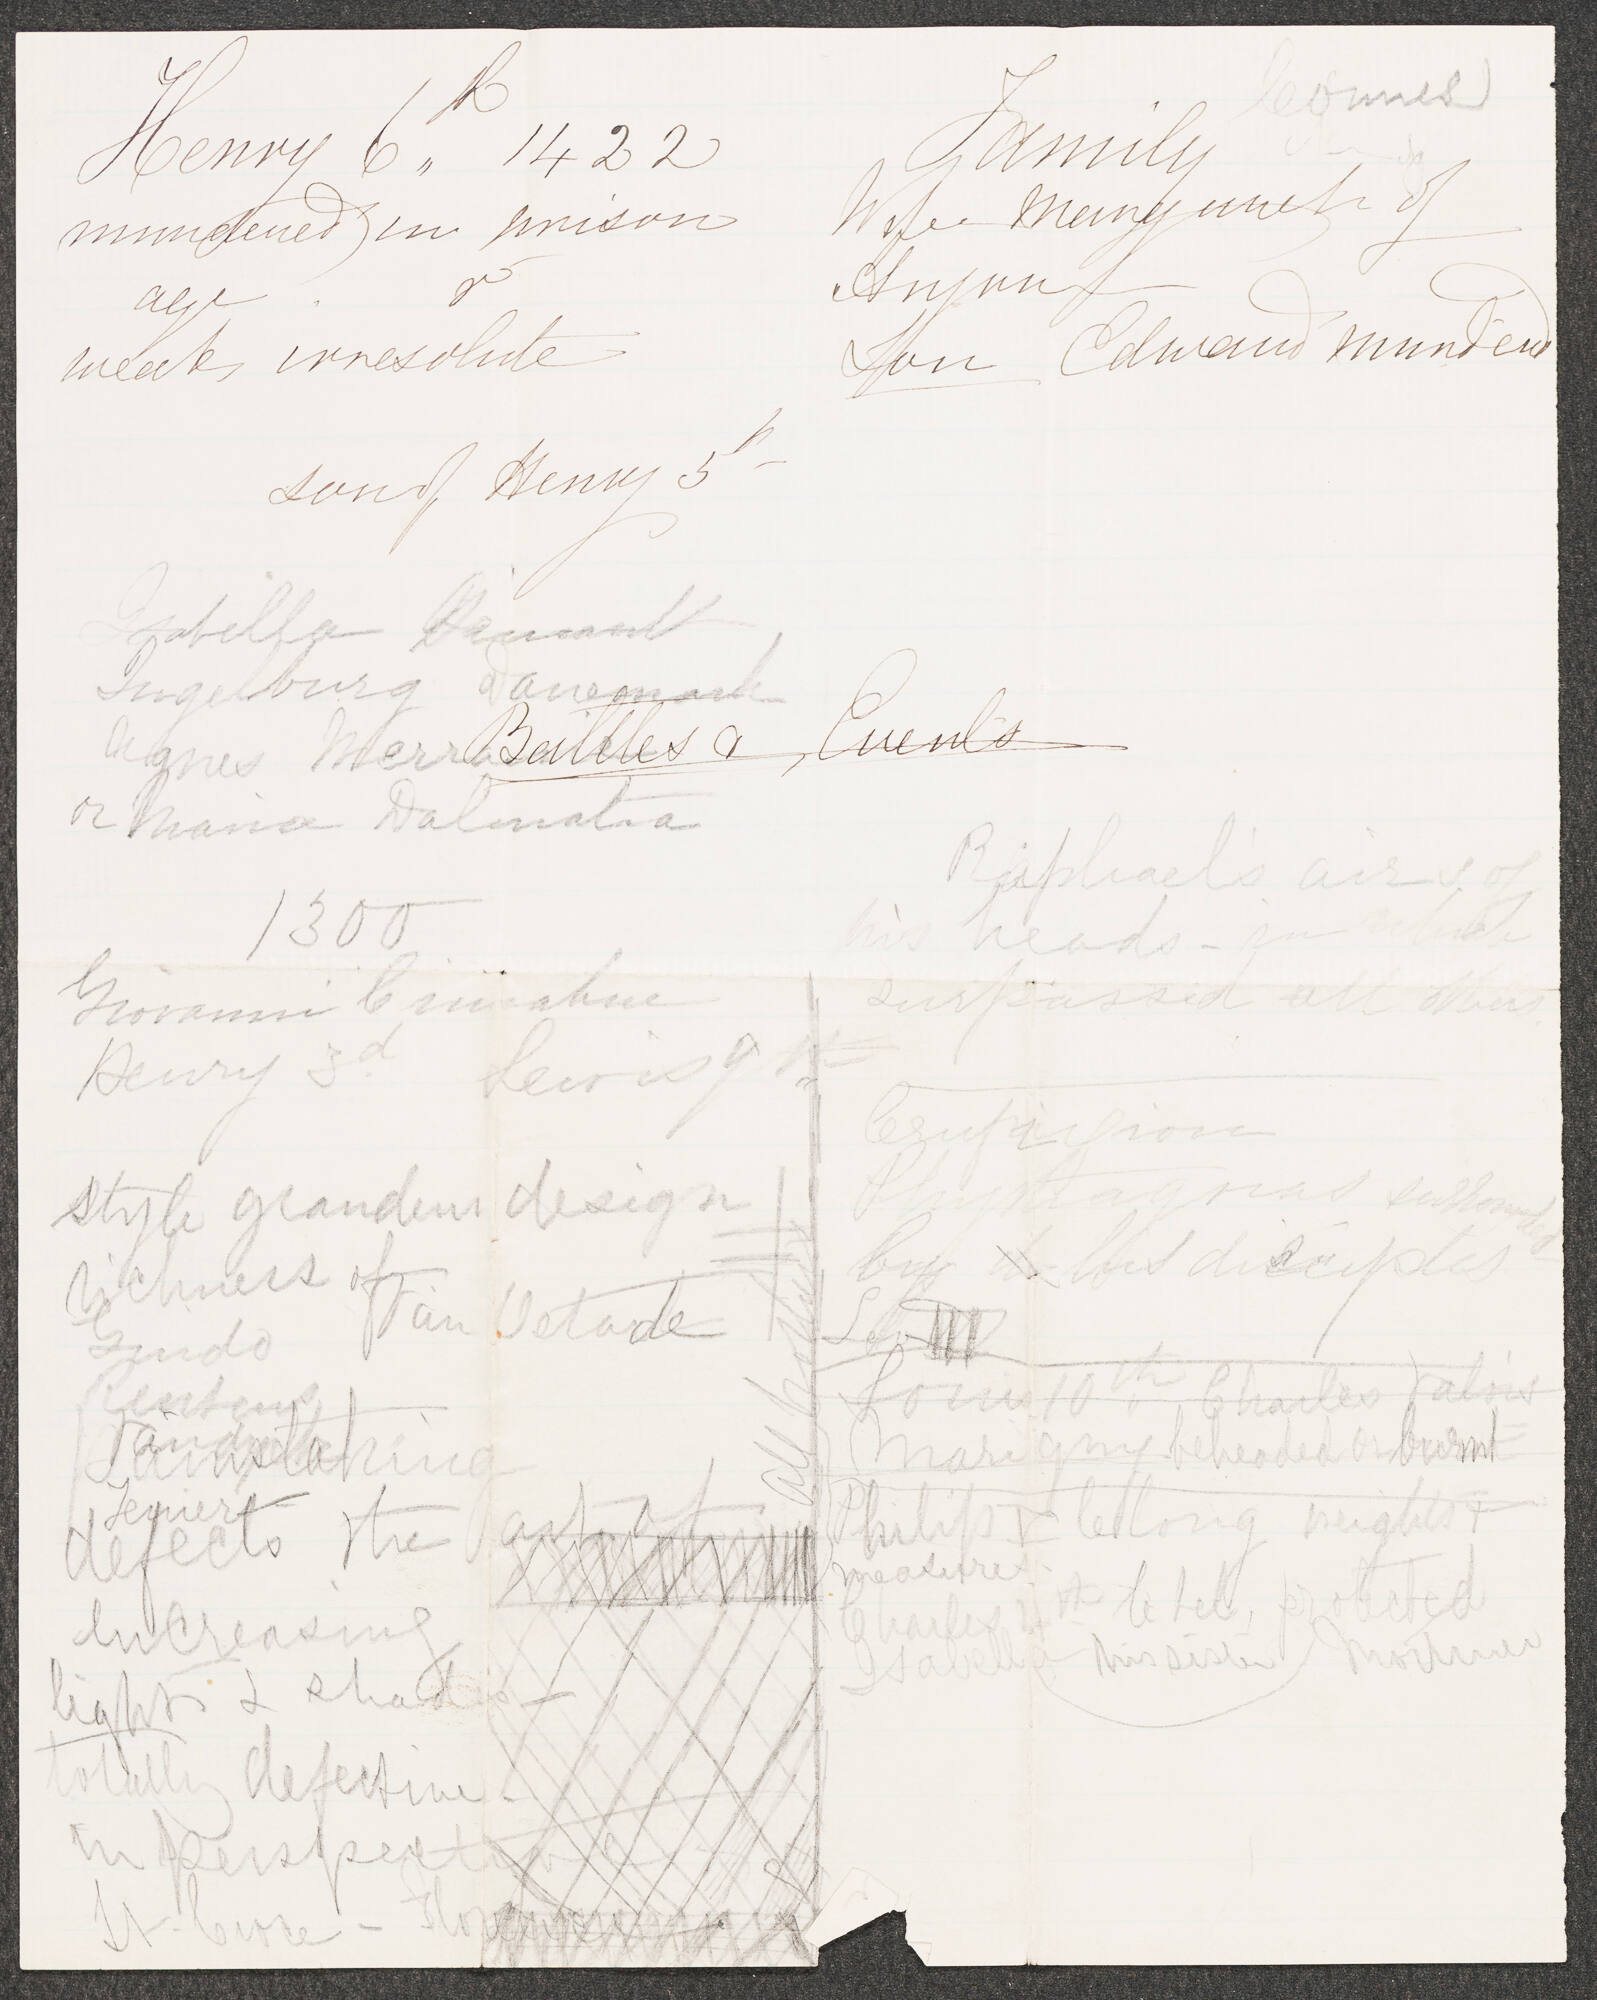 Henry 6th 1422
murdered in prison
age
weak, irresolute
son of Henry 5th
Family
Wife Margaret of
Anjou
Son Edward murdered
Isabella Hainault
Ingelburg Danemark
Agnes
Battles & Events
or Maria Dalmatia
1300
Giovanni Cimabue
Henry 3d Lewis 9th
style grandeur design
richness of
Van
Guido
Painstaking
Teniers
defects the art of
increasing
lights & shades
totally defective
in perspective
St. Croce -
all
Raphael's airs of
his heads - in which
surpassed all others
surrounded
by his disciples
Louis 10th Charles Valois
Marigny beheaded or burnt
Philip le long weights &
measures
Charles 4th le bel, protected
Isabella his sister Mortimer